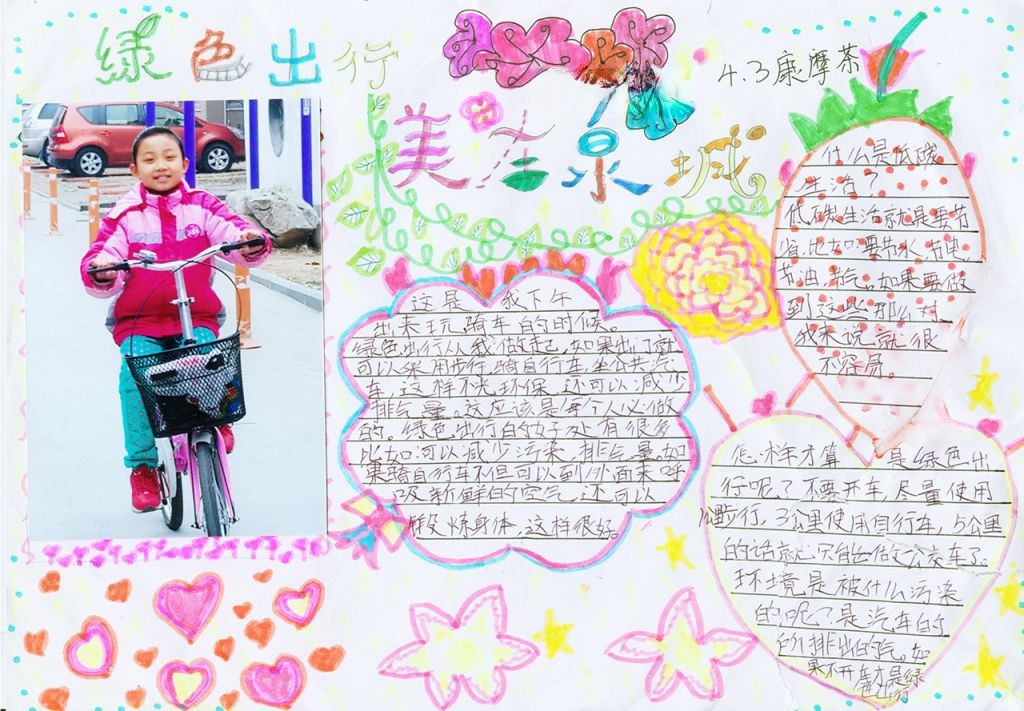 绿色出行
美在泉城
4.3康摩茶
什么是低碳
生活？
低碳生活就是要节
省，比如：要节水、节电、
节油、节气。如果要做
到这些那么对
我来说就很
不容易。
这是我下午
出来玩骑车的时候。
绿色出行从我做起，如果出门就
可以采用步行、骑自行车、坐公共汽
车，这样不光环保，还可以减少
排气量。这应该是每个人必做
的。绿色出行的好处有很多
比如：可以减少污染、排气量。如
果骑自行车不但可以到外面来呼
吸新鲜的空气，还可以
锻炼身体，这样很好。
怎样才算是绿色出
行呢？不要开车，尽量使用
步行，3公里使用自行车，5公里
的话就只能做公交车了。
环境是被什么污染
的呢？是汽车的
排出的气。如
果不开车才是绿
色出行